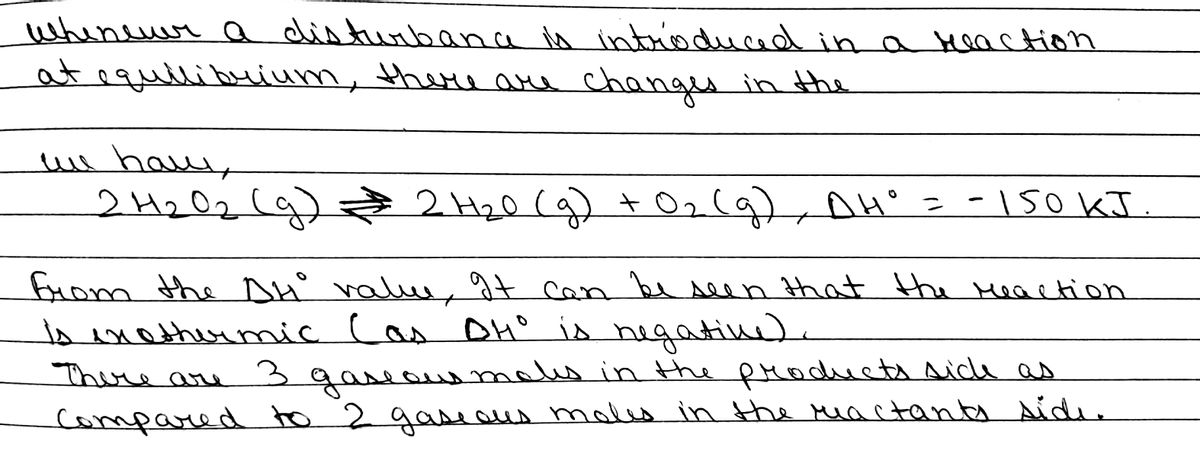 whenever a disturbance is introduced in a reaction
at equilibrium, there are changes in the
we have,
2H2O2 (g) ⇌ 2H2O (g) + O2 (g), ΔH° = -150 KJ.
From the ΔH° value, It can be seen that the reaction
is exothermic (as ΔH° is negative).
There are 3 gaseous moles in the products side as
compared to 2 gaseous moles in the reactants side.